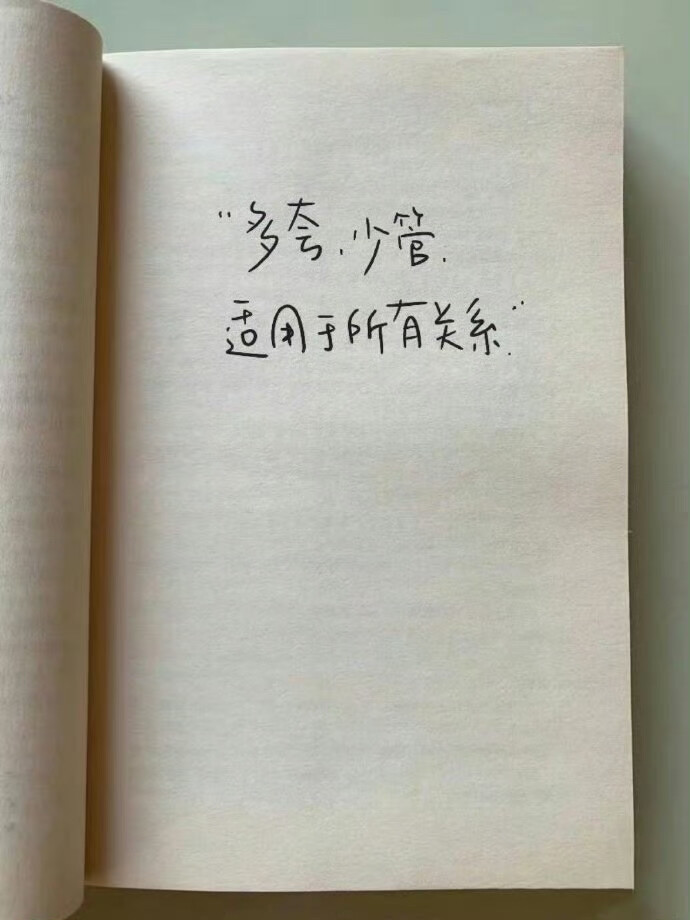 “多夸,少管.
适用于所有关系.”